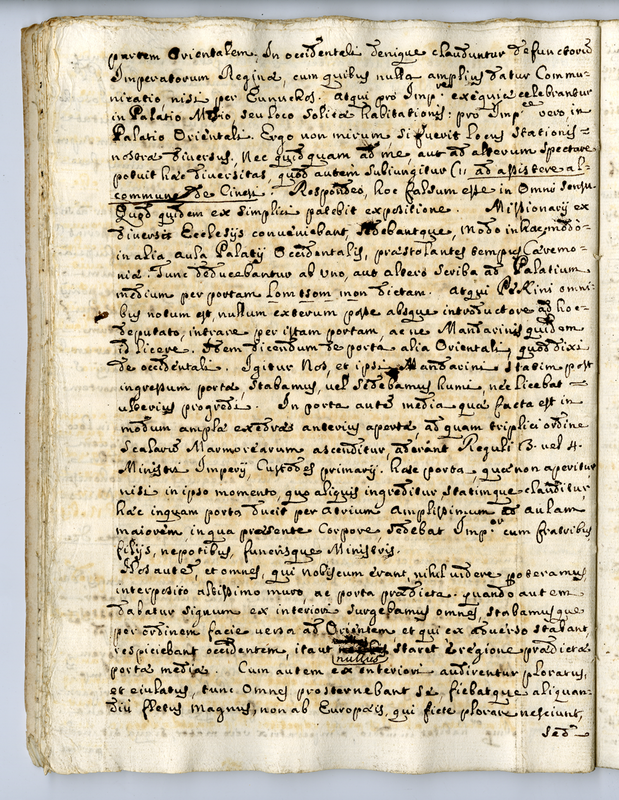 partem Orientalem. In occidentali denique clauduntur defunctorũ
Imperatorum Reginæ, cum quibus nulla amplius datur Commu-
nicatio nisi per Eunuchos. atqui pro Imp.ᵉ exequiæ celebrantur
in Palatio Medio, seu loco solitæ habitationis: pro Imp.ᶜᵉ vero in
Palatio Orientali. Ergo non mirum si fuerit locus stationis
nostræ diversus. Nec quidquam ad me, aut ad alterum spectare
potuit hæc diversitas, quod autem subiungitur C11 ad assistere al-
commune de Cinesi. Respondeo, hoc falsum esse in omni sensu.
Quod quidem ex simplici patebit expositione. Missionarij ex
diversis Ecclesijs conveniebant, sedebantque, modo in hac, modò
in alia aula Palatij Occidentalis, præstolantes tempus Cæremo-
niæ. Tunc deducabantur ab uno, aut altero scriba ad Palatium
medium per portam Lom tsom mon dictam. Atqui Pekini omni-
bus notum est, nullum exterum posse absque introductore ad hoc
deputato, intrare per istam portam, ac ne Mandarinis quidem
id licere. Idem dicendum de porta alia Orientali, quod dixi
de occidentali. Igitur Nos, et ipsi Mandarini statim post
ingressum portæ, stabamus, vel sedebamus humi, nec licebat
ulterius progredi. In porta autẽ media quæ facta est in
modum amplæ exedræ anterius apertæ, ad quam triplici ordine
scalarũ Marmorearum ascenditur, aderant Reguli 3. vel 4.
Ministri Imperij Custodes primarij. hæc porta, quæ non aperitur
nisi in ipso momento, quo aliquis ingreditur statimque clauditur
hæc inquam porta ducit per atrium Amplissimum ad aulam
maiorem in qua præsente Corpore, sedebat Imp.ᵒʳ cum fratribus
filijs, nepotibus, funerisque Ministris.
Nos autẽ, et omnes, qui nobiscum erant, nihil videre poteramus
interposito altissimo muro, ac porta prædicta. quando autem
dabatur signum ex interiori surgebamus omnes stabamusque
per ordinem facie versa ad Orientem et qui ex adverso stabant
respiciebant occidentem, ita ut nullus staret è regione prædictæ
portæ mediæ. Cum autem ex interiori audirentur ploratus,
et eiulatus, tunc Omnes prosternebant se, fiebatque aliquan-
diu fletus magnus, non ab Europæis, qui ficte plorare nesciunt,
sed